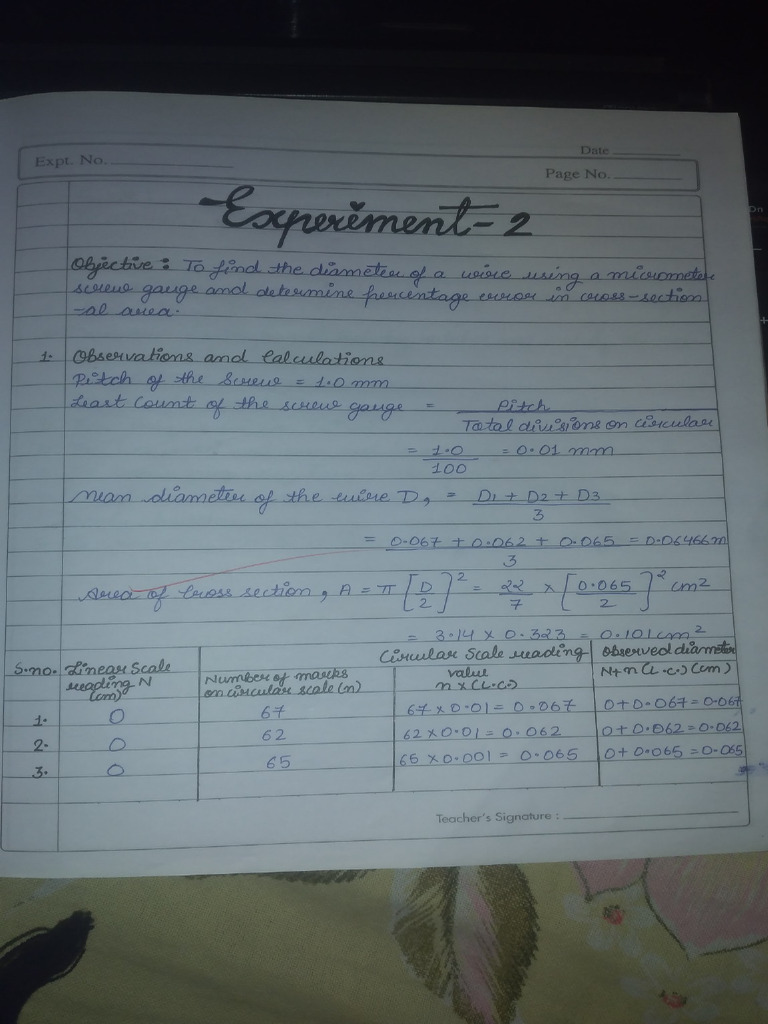 Date
Expt. No.
Page No.
Experiment-2
Objective : To find the diameter of a wire using a micrometer
screw gauge and determine percentage error in cross-section
-al area.
1. Observations and Calculations
Pitch of the Screw = 1.0 mm
Least Count of the screw gauge = Pitch / Total divisions on circular
= 1.0 / 100 = 0.01 mm
Mean diameter of the wire D, = D1 + D2 + D3 / 3
= 0.067 + 0.062 + 0.065 / 3 = 0.06466m
Area of Cross section, A = π [D/2]² = 22/7 × [0.065/2]² cm²
= 3.14 × 0.323 = 0.101cm²
S.no. Linear Scale reading N (cm) Circular Scale reading Observed diameter
Number of marks on circular scale (n) value n × (L.C.) N+n(L.C.) (cm)
1. 0 67 67 × 0.01 = 0.067 0+0.067=0.067
2. 0 62 62 × 0.01 = 0.062 0+0.062=0.062
3. 0 65 65 × 0.001 = 0.065 0+0.065=0.065
Teacher's Signature :